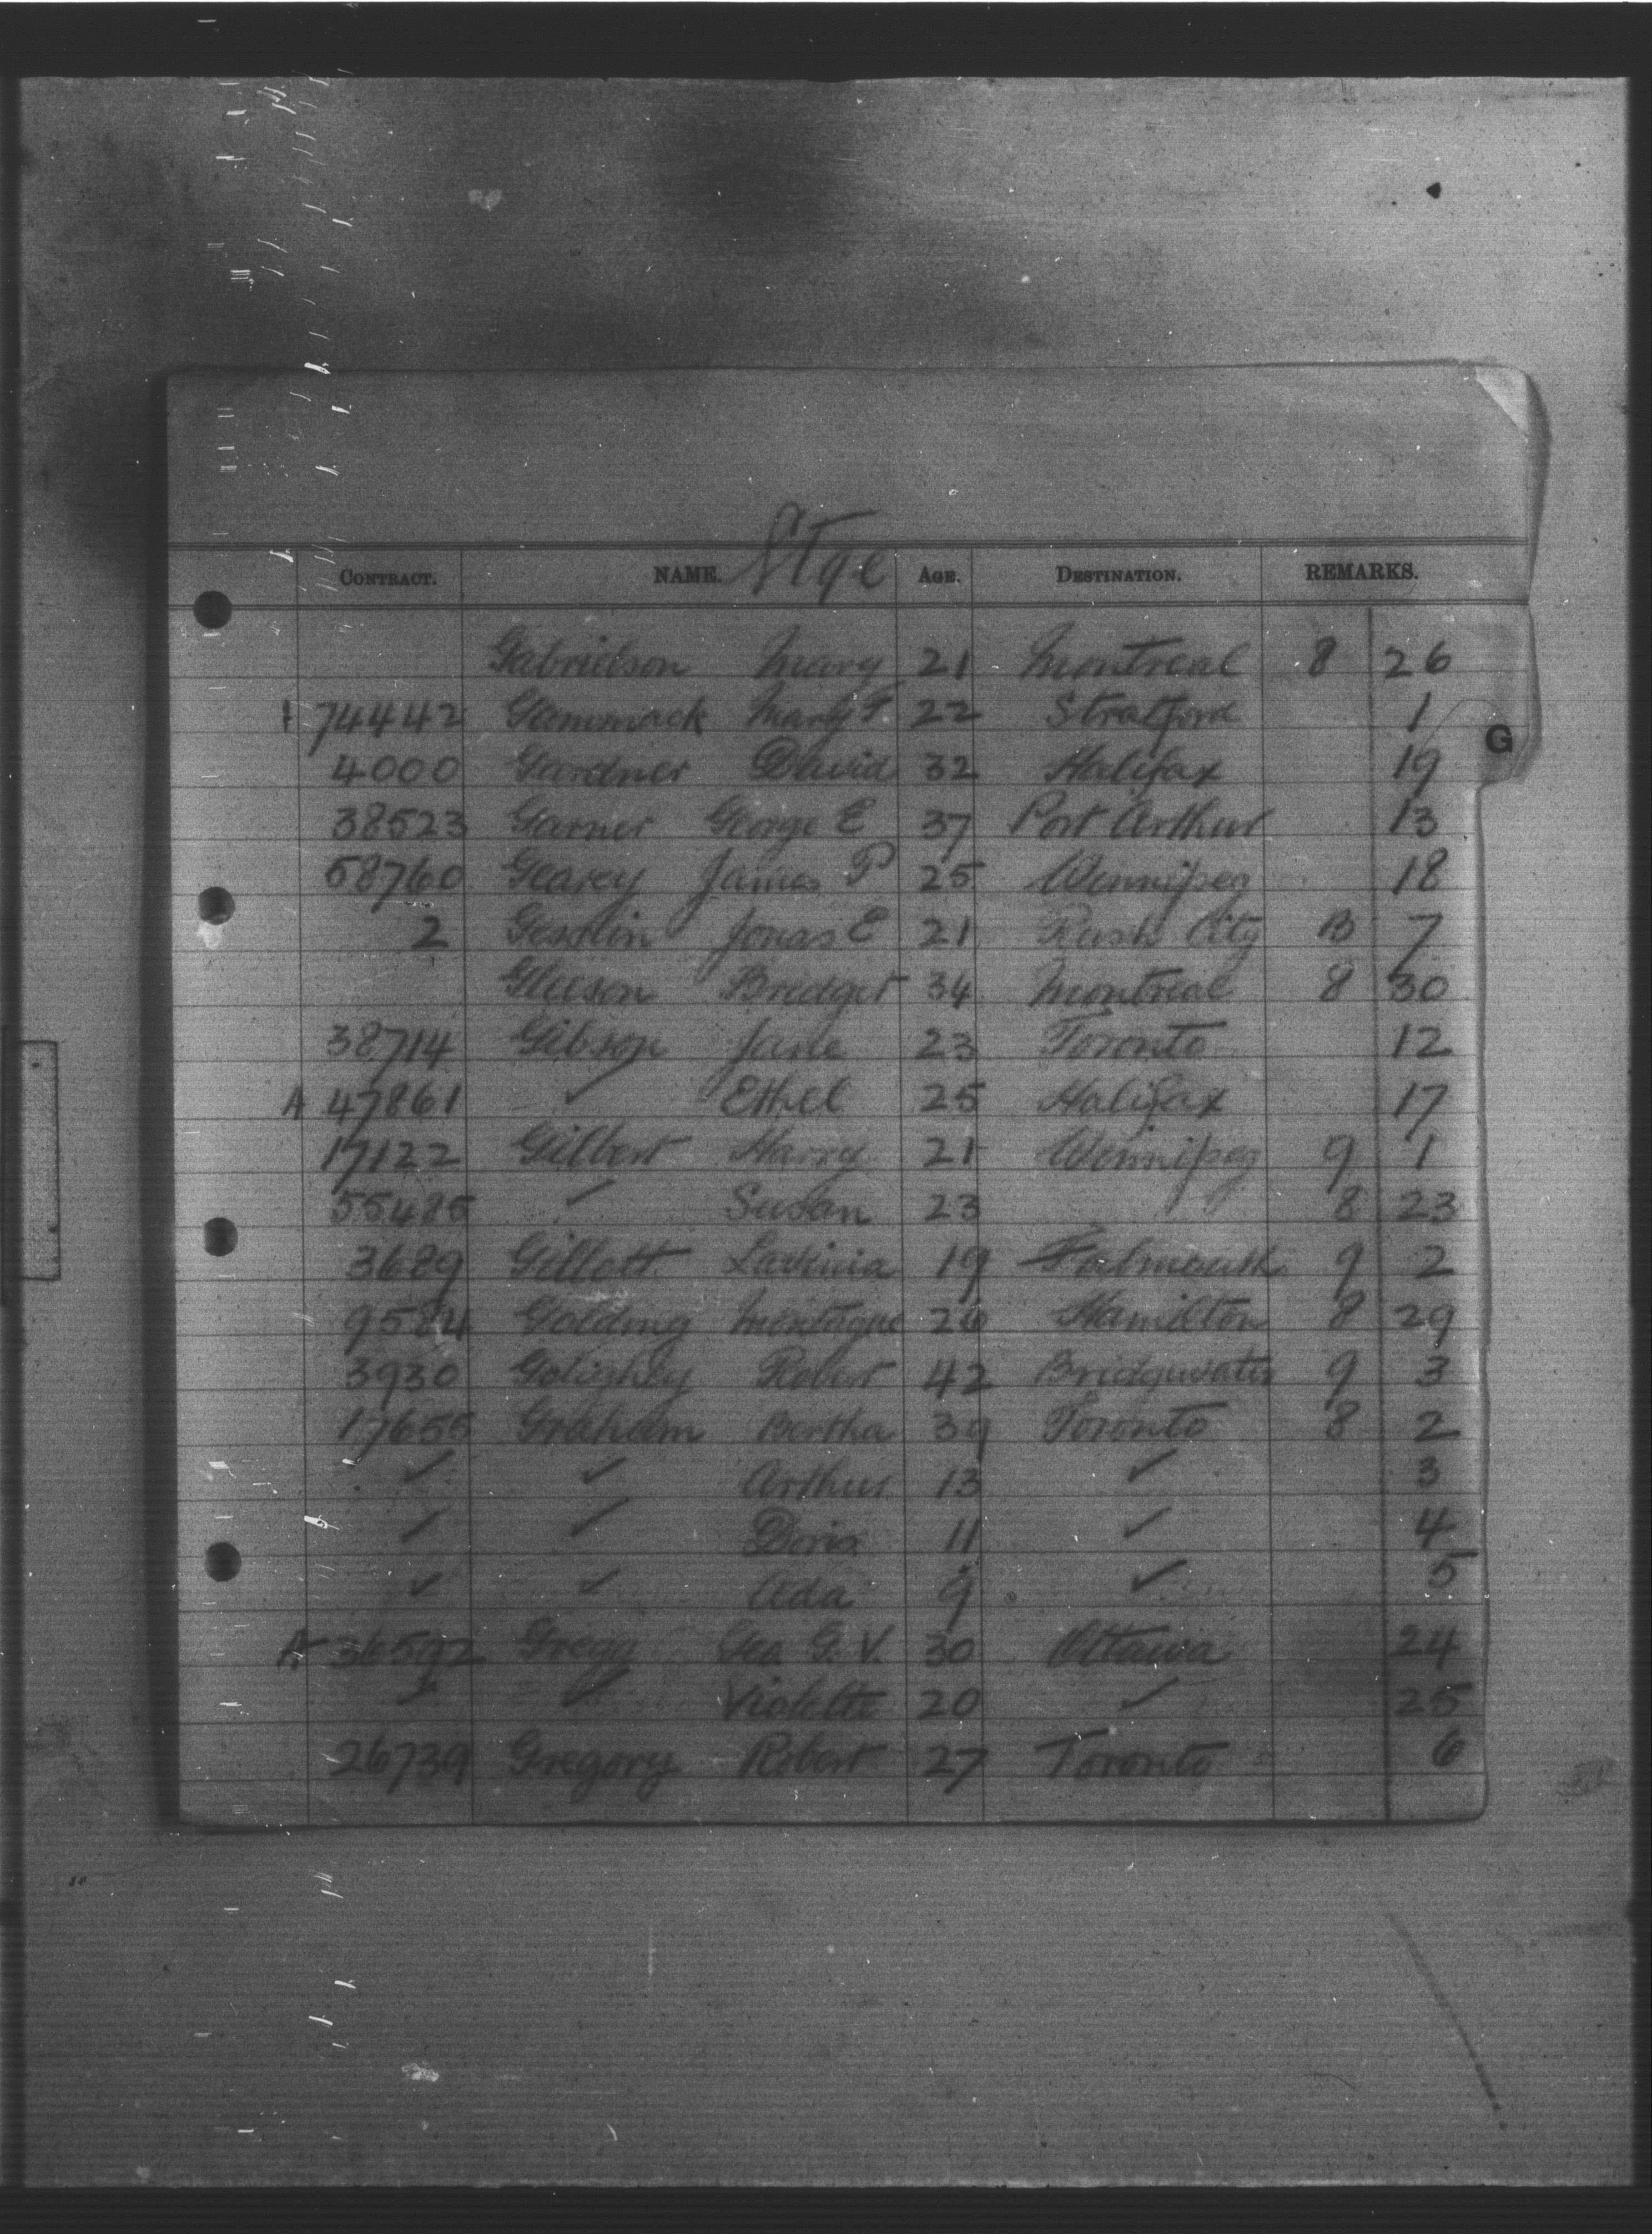 Stge
CONTRACT. NAME. AGE. DESTINATION. REMARKS.
Gabrielson Mary 21 Montreal 8 26
74442 Gammack Mary F. 22 Stratford 1
G
4000 Gardner David 32 Halifax 19
38523 Garner George E 37 Port Arthur 13
58760 Gearey James P 25 Winnipeg 18
2 Gesslin Jonas E 21 Rush City B 7
Gleeson Bridget 34 Montreal 8 30
38714 Gibson Jane 23 Toronto 12
A 47861 ✓ Ethel 25 Halifax 17
17122 Gilbert Harry 21 Winnipeg 9 1
55485 ✓ Susan 23 8 23
3689 Gillott Lavinia 19 Falmouth 9 2
9584 Golding Montague 26 Hamilton 8 29
3930 Golightly Robert 42 Bridgewater 9 3
17655 Graham Bertha 39 Toronto 8 2
✓ ✓ Arthur 13 ✓ 3
✓ ✓ Doris 11 ✓ 4
✓ ✓ Ada 9 ✓ 5
A 36592 Gregg Geo. G. V. 30 Ottawa 24
✓ ✓ Violette 20 ✓ 25
26739 Gregory Robert 27 Toronto 6